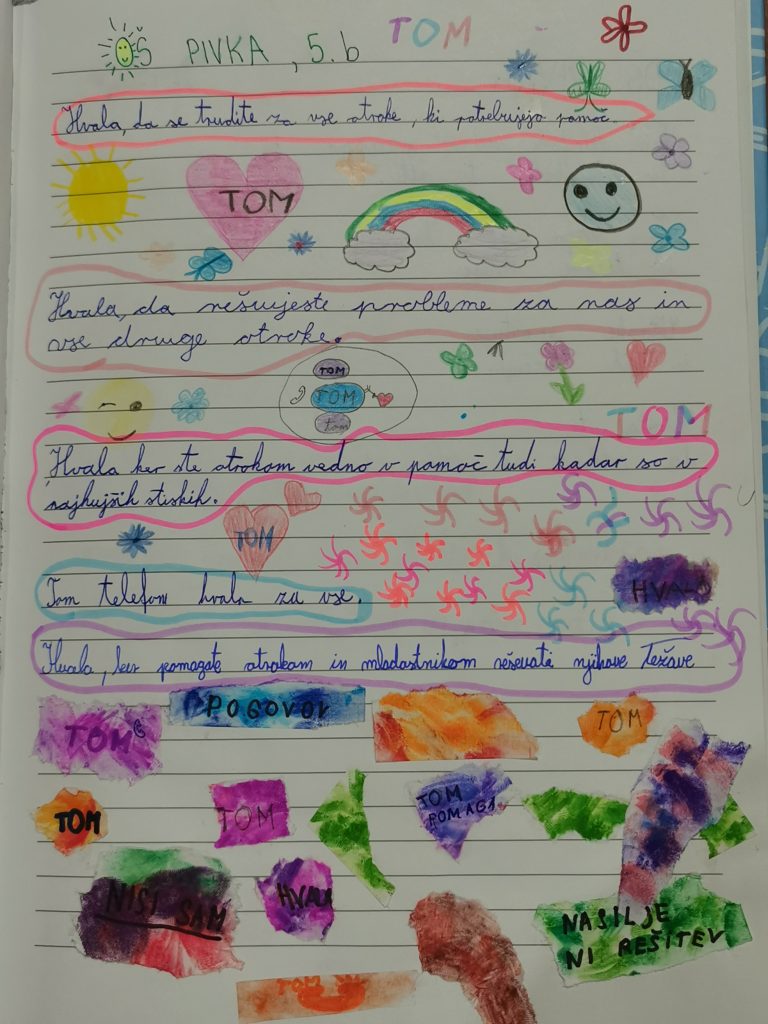 OŠ PIVKA, 5.b TOM
Hvala, da se trudite za vse otroke, ki potrebujejo pomoč.
TOM
Hvala, da rešujete probleme za nas in
vse druge otroke.
TOM
TOM
tom
TOM
Hvala ker ste otrokom vedno v pomoč tudi kadar so v
najhujših stiskih.
TOM
Tom telefon hvala za vse.
HVALA
Hvala, ker pomagate otrokom in mladostnikom reševati njihove težave
TOM
POGOVOR
TOM
TOM
TOM
TOM
POMAGA
NISI SAM
HVALA
NASILJE
NI REŠITEV
TOM